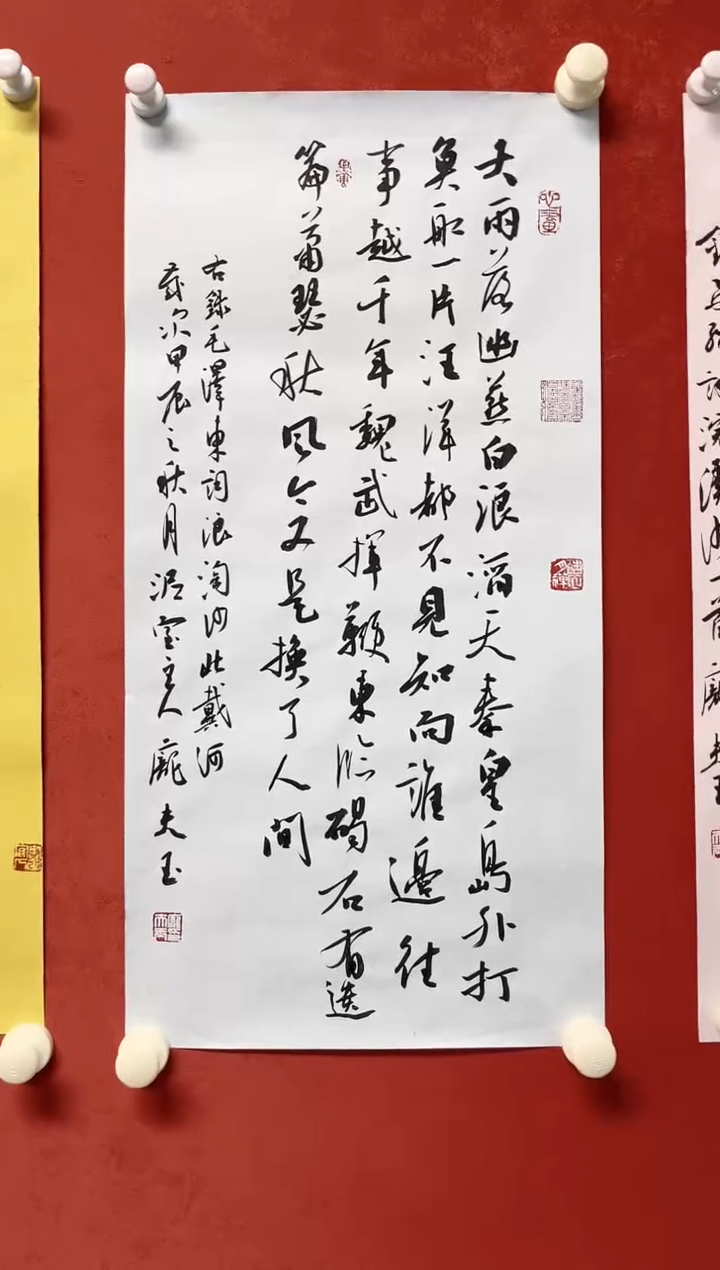 大雨落幽燕白浪滔天秦皇島外打
魚船一片汪洋都不見知向誰邊往
事越千年魏武揮鞭東臨碣石有遺
篇蕭瑟秋風今又是換了人間
右錄毛澤東詞浪淘沙北戴河
歲次甲辰之秋月泥室主人龐夫玉